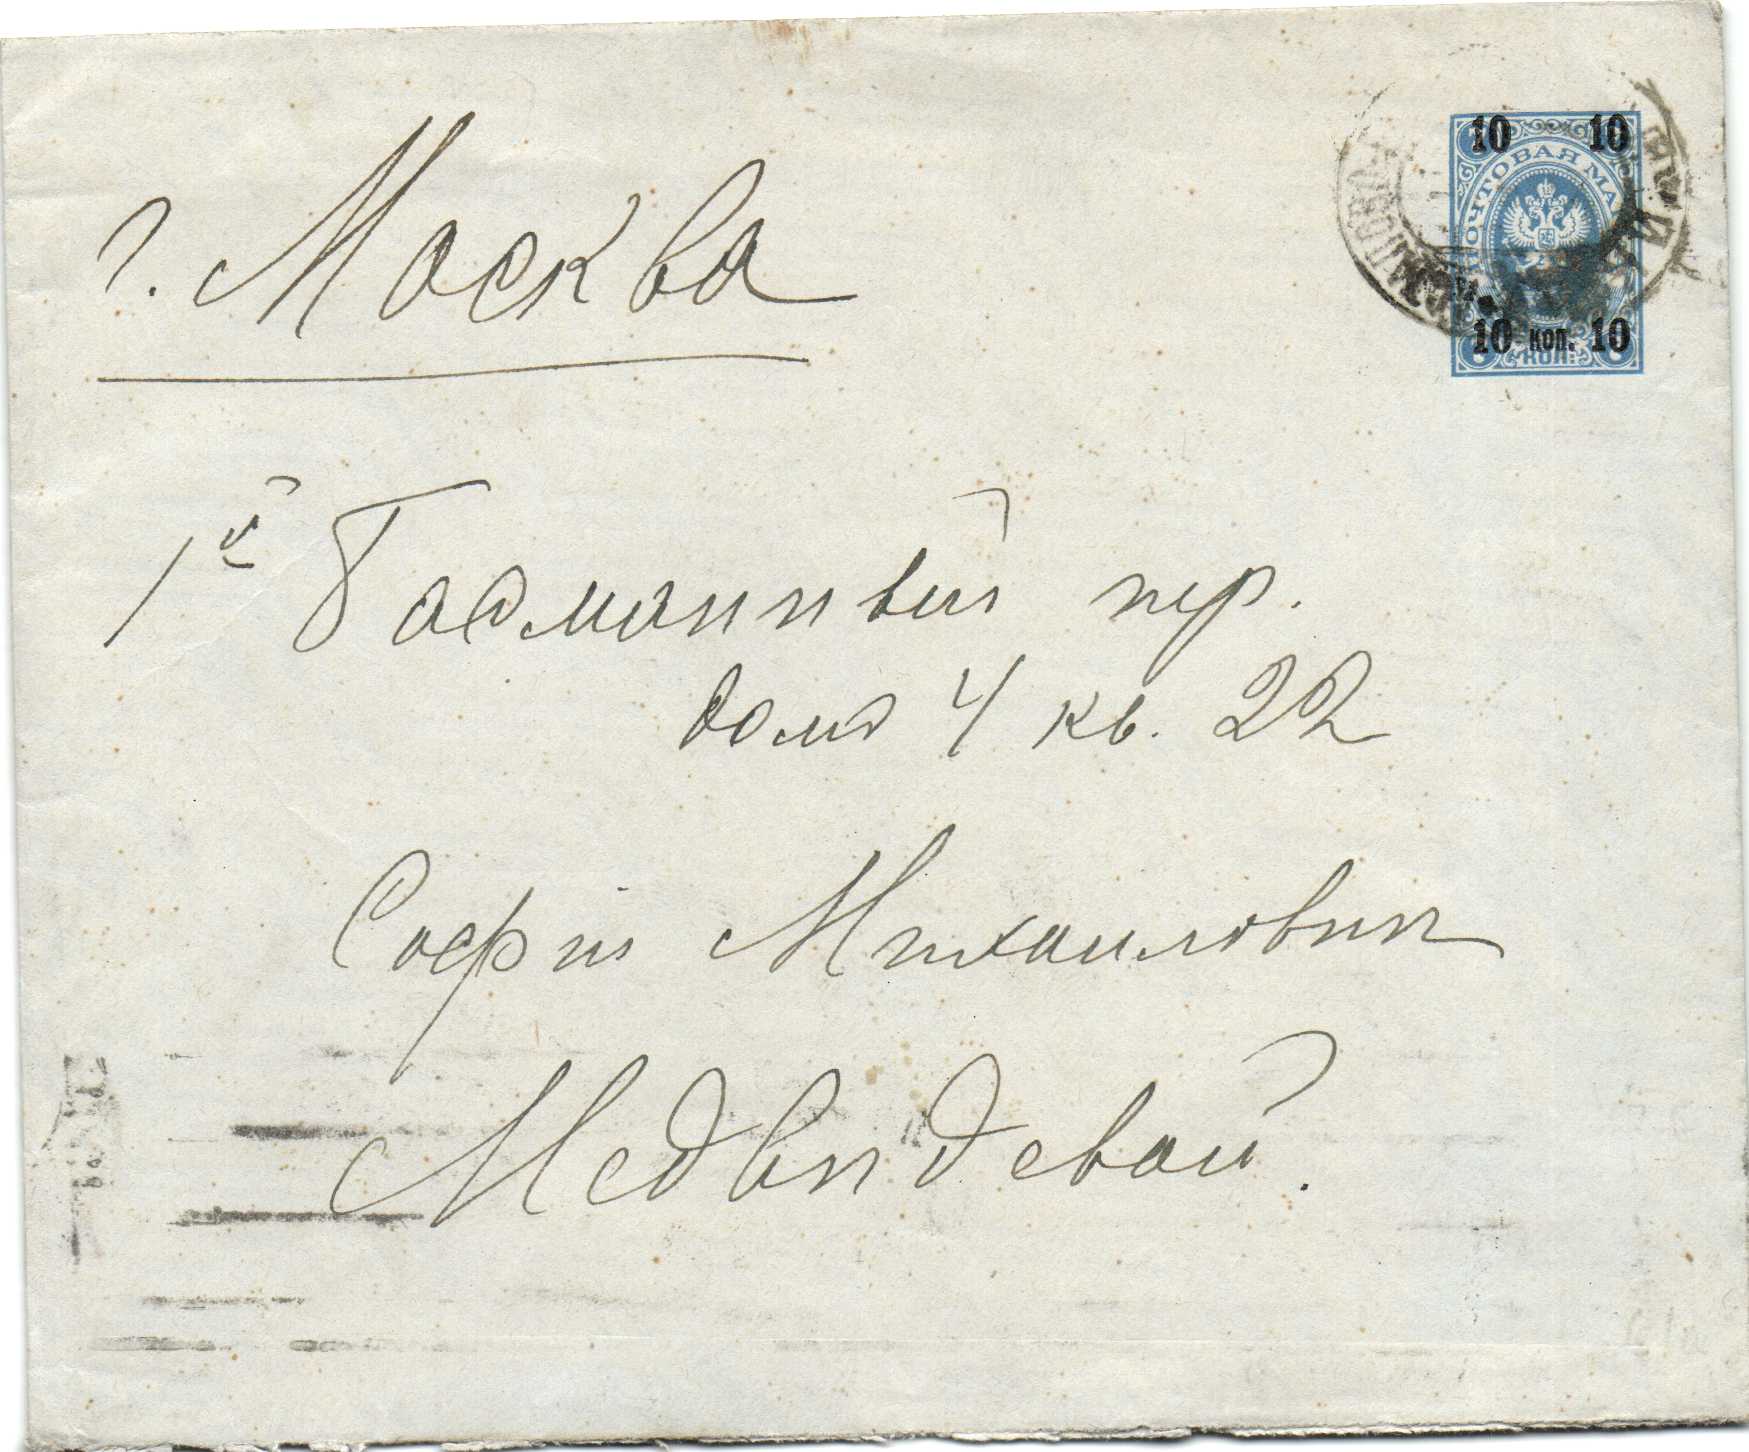 10 10
ПОЧТОВАЯ МА
10 коп. 10
КОП.
г. Москва
1й Басманный пер.
домъ 4 кв. 22
Софіи Михаиловни
Медвидевой.